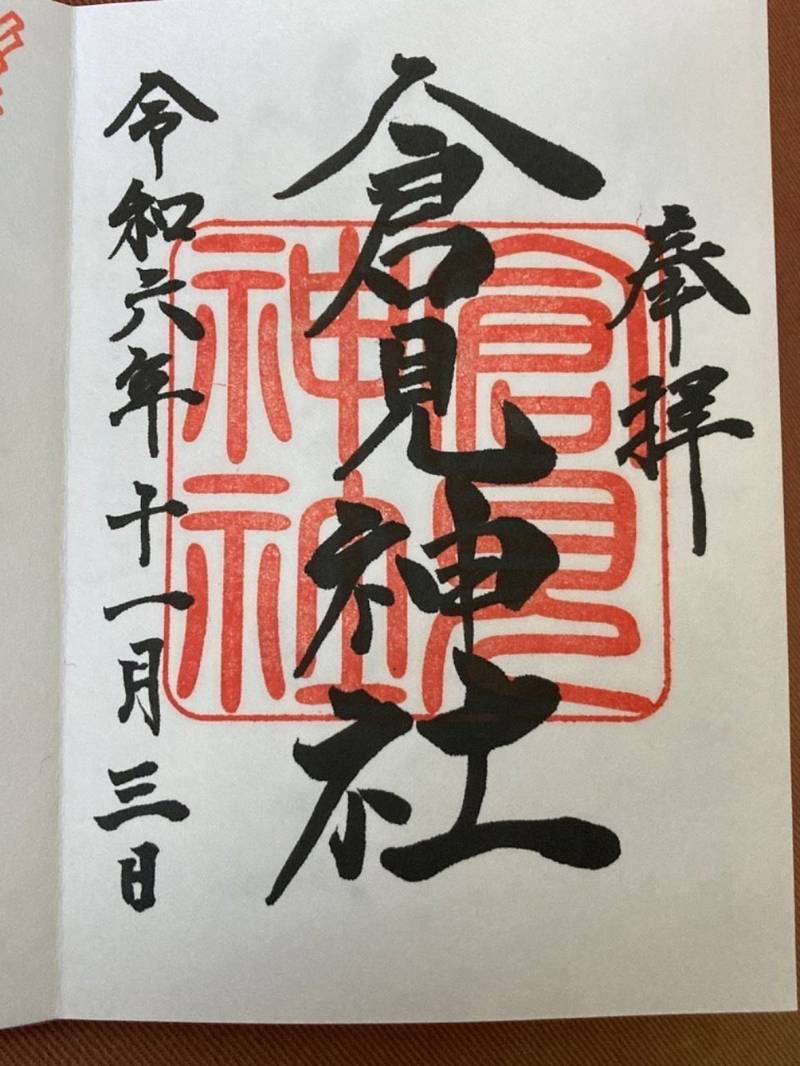 奉拝
倉見神社
倉見
神社
令和六年十一月三日